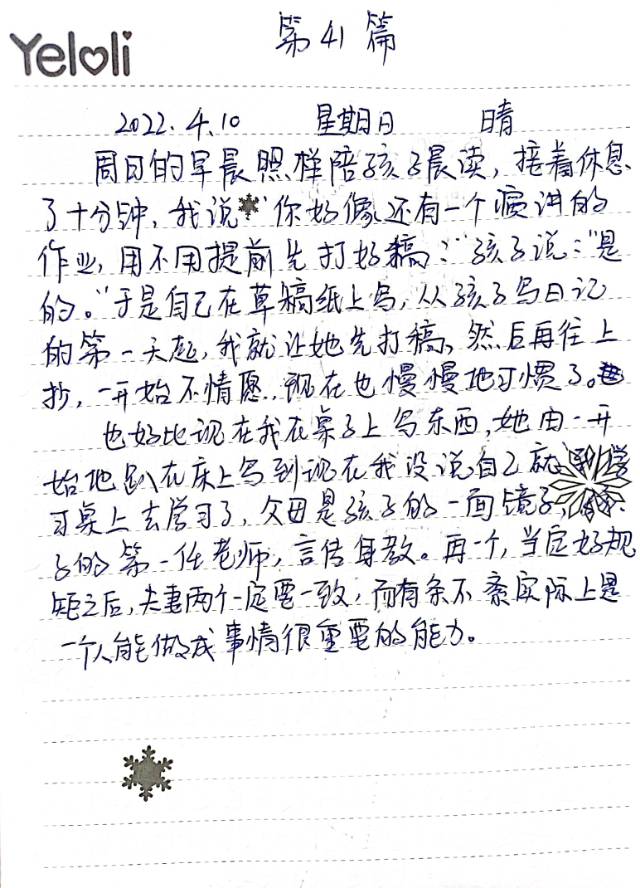 Yeloli
第41篇
2022.4.10 星期日 晴
周日的早晨照样陪孩子晨读，接着休息
了十分钟，我说“你好像还有一个演讲的
作业，用不用提前先打好稿：”孩子说：“是
的。”于是自己在草稿纸上写，从孩子写日记
的第一天起，我就让她先打稿，然后再往上
抄，一开始不情愿，现在也慢慢地习惯了。
也好比现在我在桌子上写东西，她由一开
始地趴在床上写到现在我没说自己就到学
习桌上去学习了，父母是孩子的一面镜子，
子的第一任老师，言传身教。再一个，当定好规
矩之后，夫妻两个一定要一致，而有条不紊实际上是
一个人能做成事情很重要的能力。